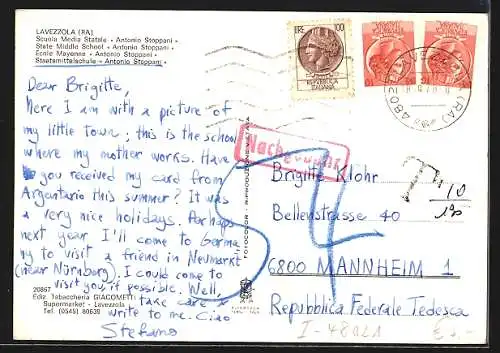 LAVEZZOLA (RA)
Scuola Media Statale - Antonio Stoppani -
State Middle School - Antonio Stoppani -
École Moyenne - Antonio Stoppani -
Staatsmittelschule - Antonio Stoppani -
Dear Brigitte,
here I am with a picture of
my little town; this is the school
where my mother works. Have
you received my card from
Argentario this summer? It was
a very nice holidays. Perhaps
next year I'll come to Germa
ny to visit a friend in Neumarkt
(near Nürnberg). I could come to
visit you, if possible. Well,
take care &
write to me. Ciao
Stefano
20867
Ediz. Tabaccheria GIACOMETTI
Supermarket - Lavezzola
Tel. (0545) 80639
LIRE 100
REPUBBLICA
ITALIANA
LAVEZZOLA (RA)
Nachgebühr
T
10
Brigitte Klohr
Bellenstrasse 40
6800 MANNHEIM 1
Repubblica Federale Tedesca
I-48021